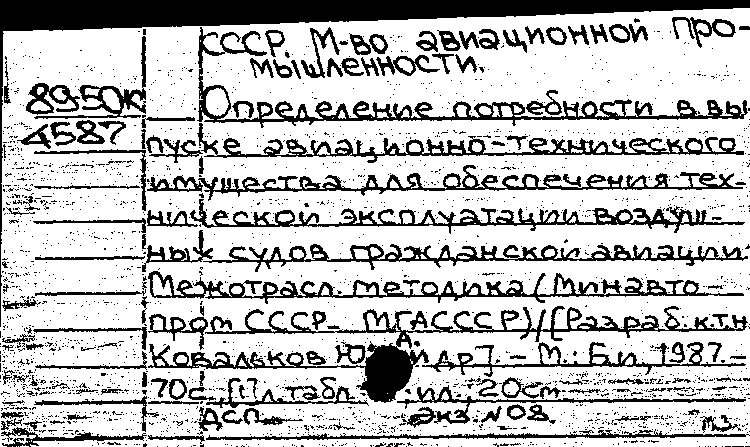 СССР. М-во авиационной про-
мышленности.
8950к
4587
Определение потребности в вы
пуске авиационно-технического
имущества для обеспечения тех-
нической эксплуатации воздуш-
ных судов гражданской авиации:
Межотрасл. методика (Минавто-
пром СССР- МГАСССР)/[Разраб. к.т.н
Ковальков Ю.А. и др]. - М.: Б.и, 1987.-
70с., [1] л. табл. : ил., 20см
ДСП Экз. №08.